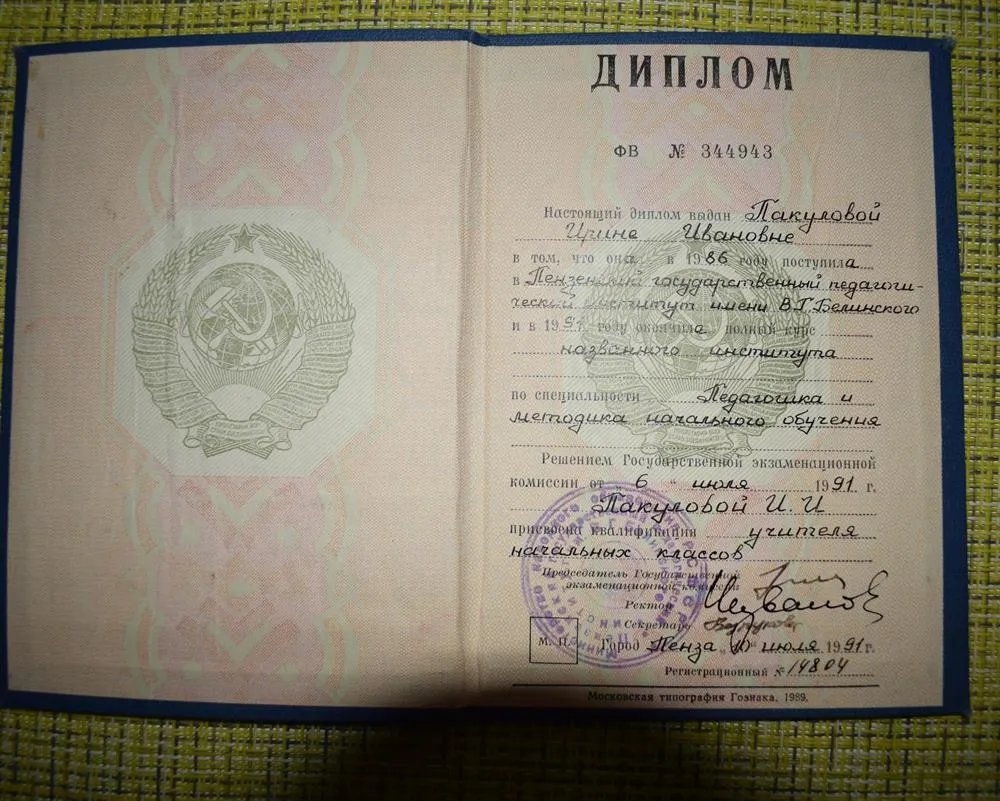 ДИПЛОМ
ФВ № 344943
Настоящий диплом выдан Пакуловой
Ирине Ивановне
в том, что она в 1986 году поступила
в Пензенский государственный педагоги-
ческий институт имени В.Г.Белинского
и в 1991 году окончила полный курс
названного института
по специальности Педагогика и
методика начального обучения
Решением Государственной экзаменационной
комиссии от „ 6 “ июля 1991 г.
Пакуловой И. И
присвоена квалификация учителя
начальных классов
Председатель Государственной
экзаменационной комиссии
Ректор
Секретарь
М. П. Город Пенза „ “ июля 1991 г.
Регистрационный № 14804
Московская типография Гознака. 1989.